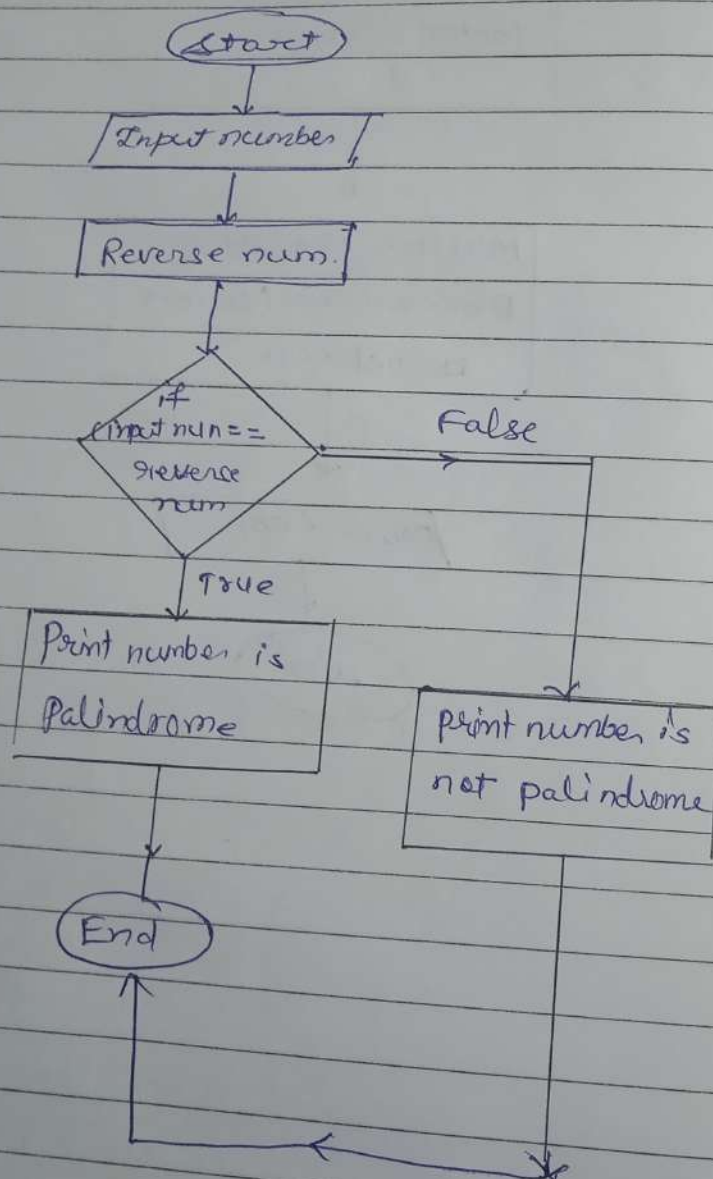 Start
Input number
Reverse num.
if
input num ==
reverse
num
False
True
Print number is
Palindrome
print number is
not palindrome
End